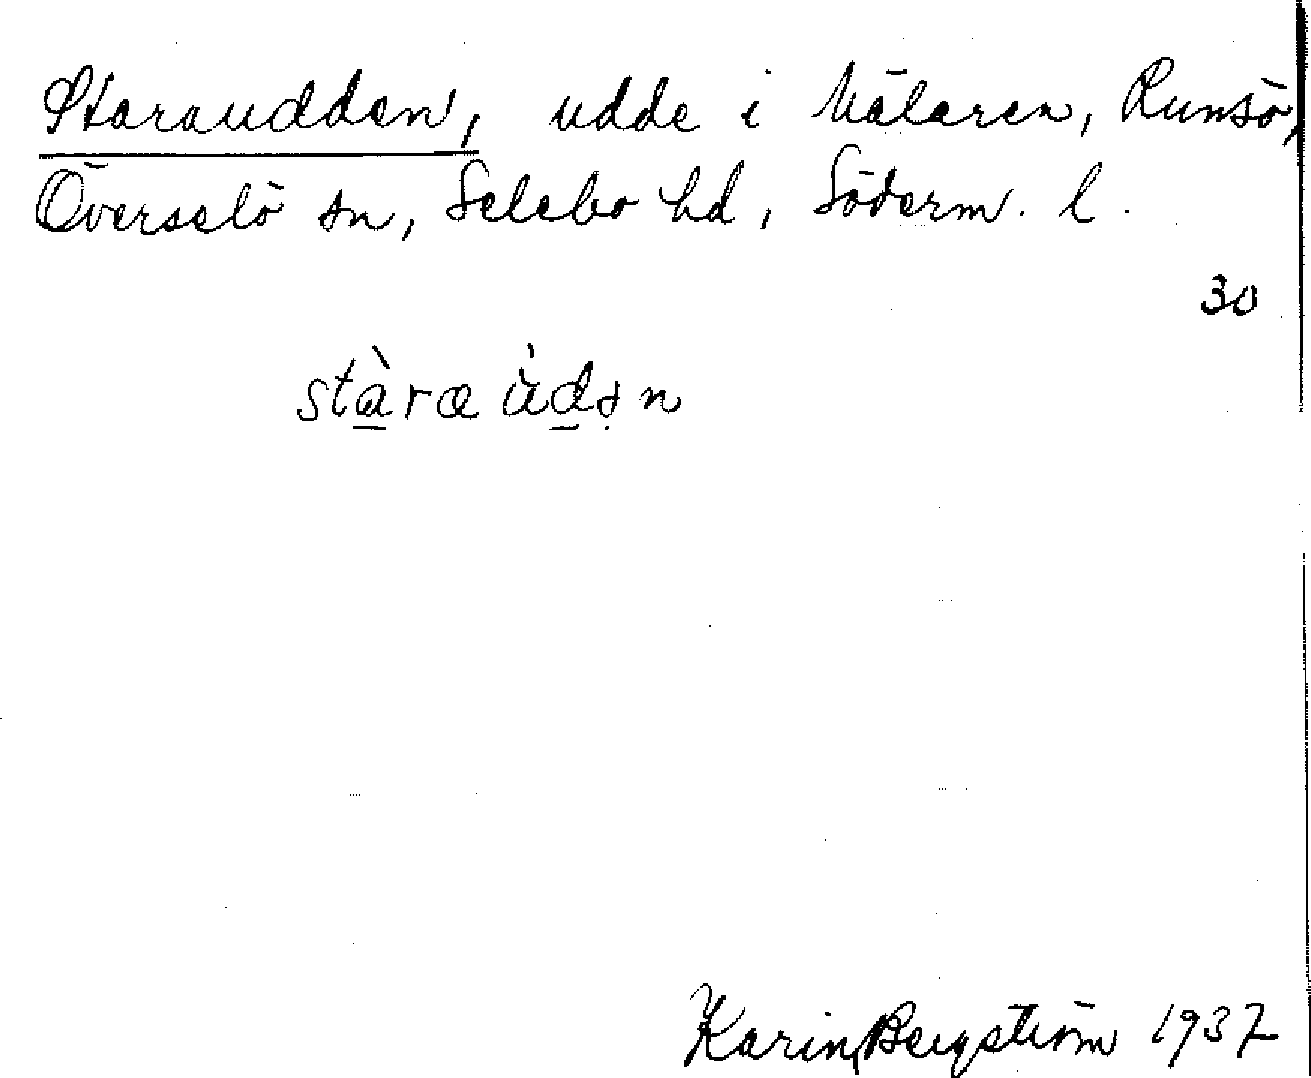 Staraudden, udde i Mälaren, Runsö,
Överselö sn, Selebo hd, Söderm. l.
30
stàra ùdən
Karin Bergström 1937